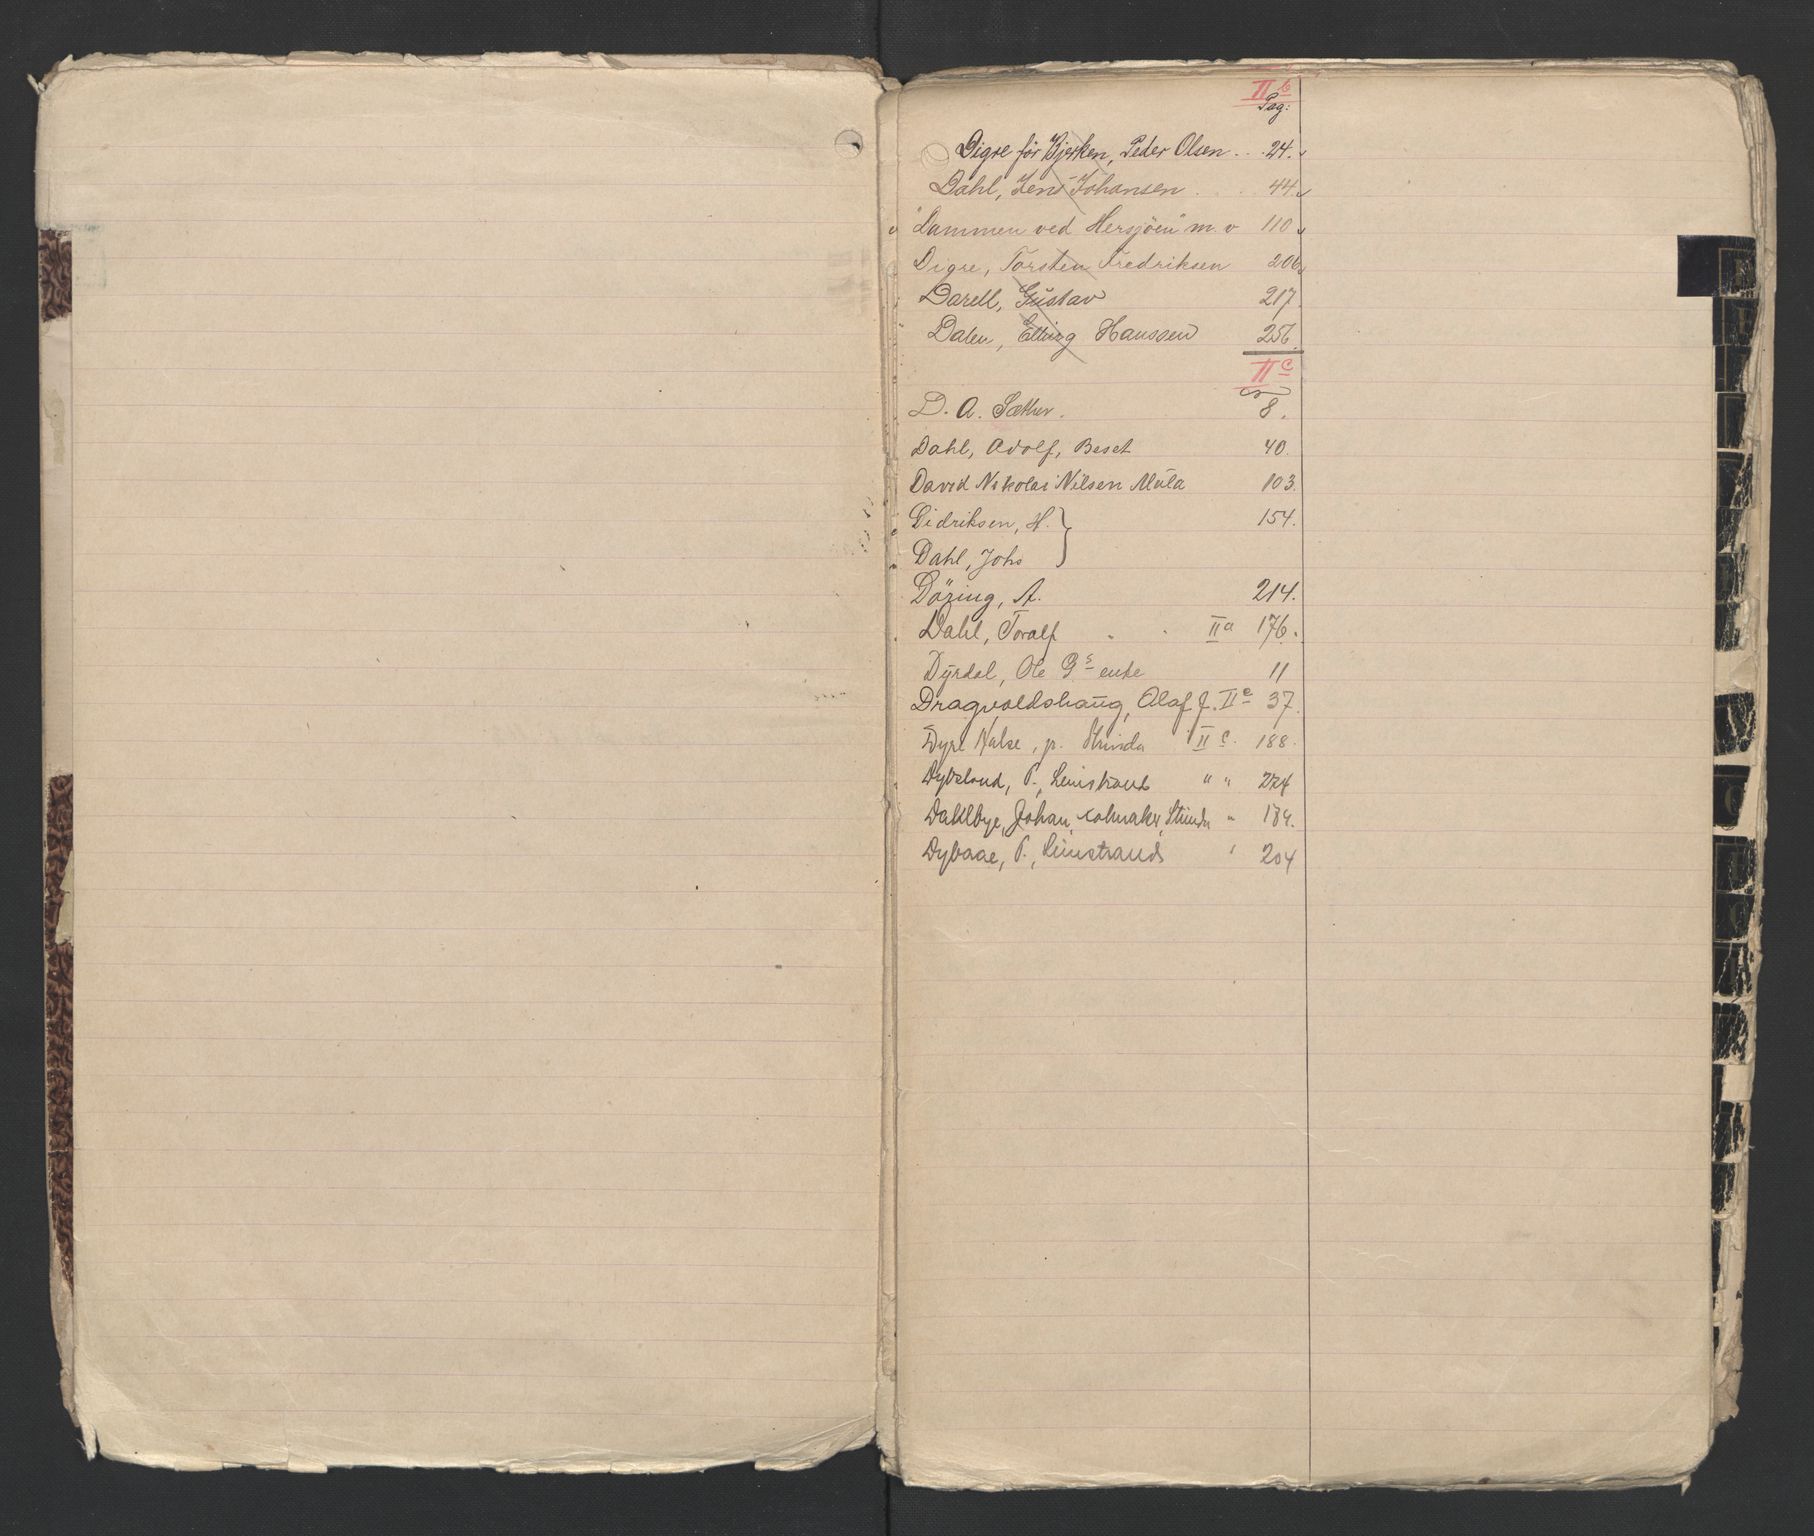 II b
Pag:
Digre för Bjerken, Peder Olsen . . 24.
Dahl, Jens Johansen . . 44.
"Dammen ved Hersjöen" m. v 110
Digre, Torsten Fredriksen 206
Darell, Gustav 217.
Dalen, Elling Hanssen 256.
II c
D. A. Sæther. 8.
Dahl, Adolf, Beset 40.
David Nikolai Nilsen Mula 103.
Didriksen, H. } 154.
Dahl, Johs
Döring, A. 214.
Dahl, Toralf . . II a 176.
Dyrdal, Ole G s enke 11
Dragvoldshaug, Olaf J. II c 37.
Dyre Halse, p. Strinda II c. 188.
Dybsland, P., Leinstrand " " 224
Dahlbye, Johan, Strinda " 189.
Dybaae, P., Leinstrand " 204